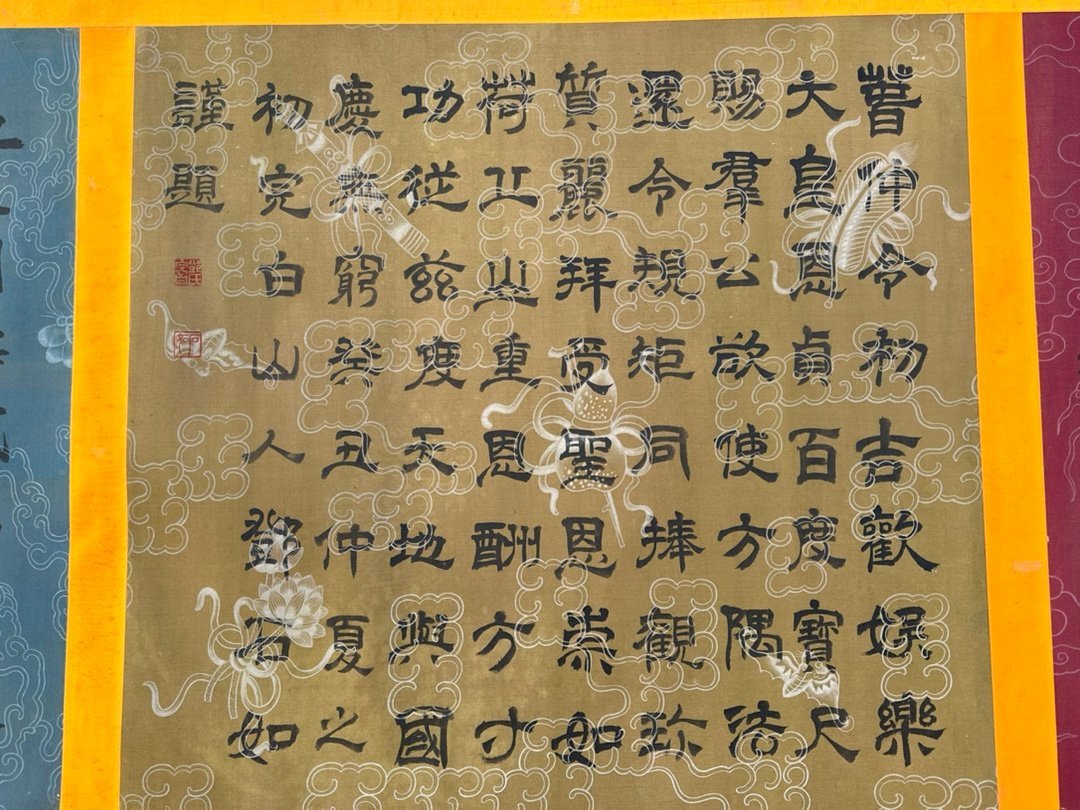 春仲令初吉歡娛樂
大皇恩貞百度寶尺
賜羣公欲使方隅法
還令規矩同捧觀珍
質麗拜受聖恩崇如
荷丘山重恩酬方寸
功從茲度天地與國
慶無窮癸丑仲夏之
初完白山人鄧石如
謹題